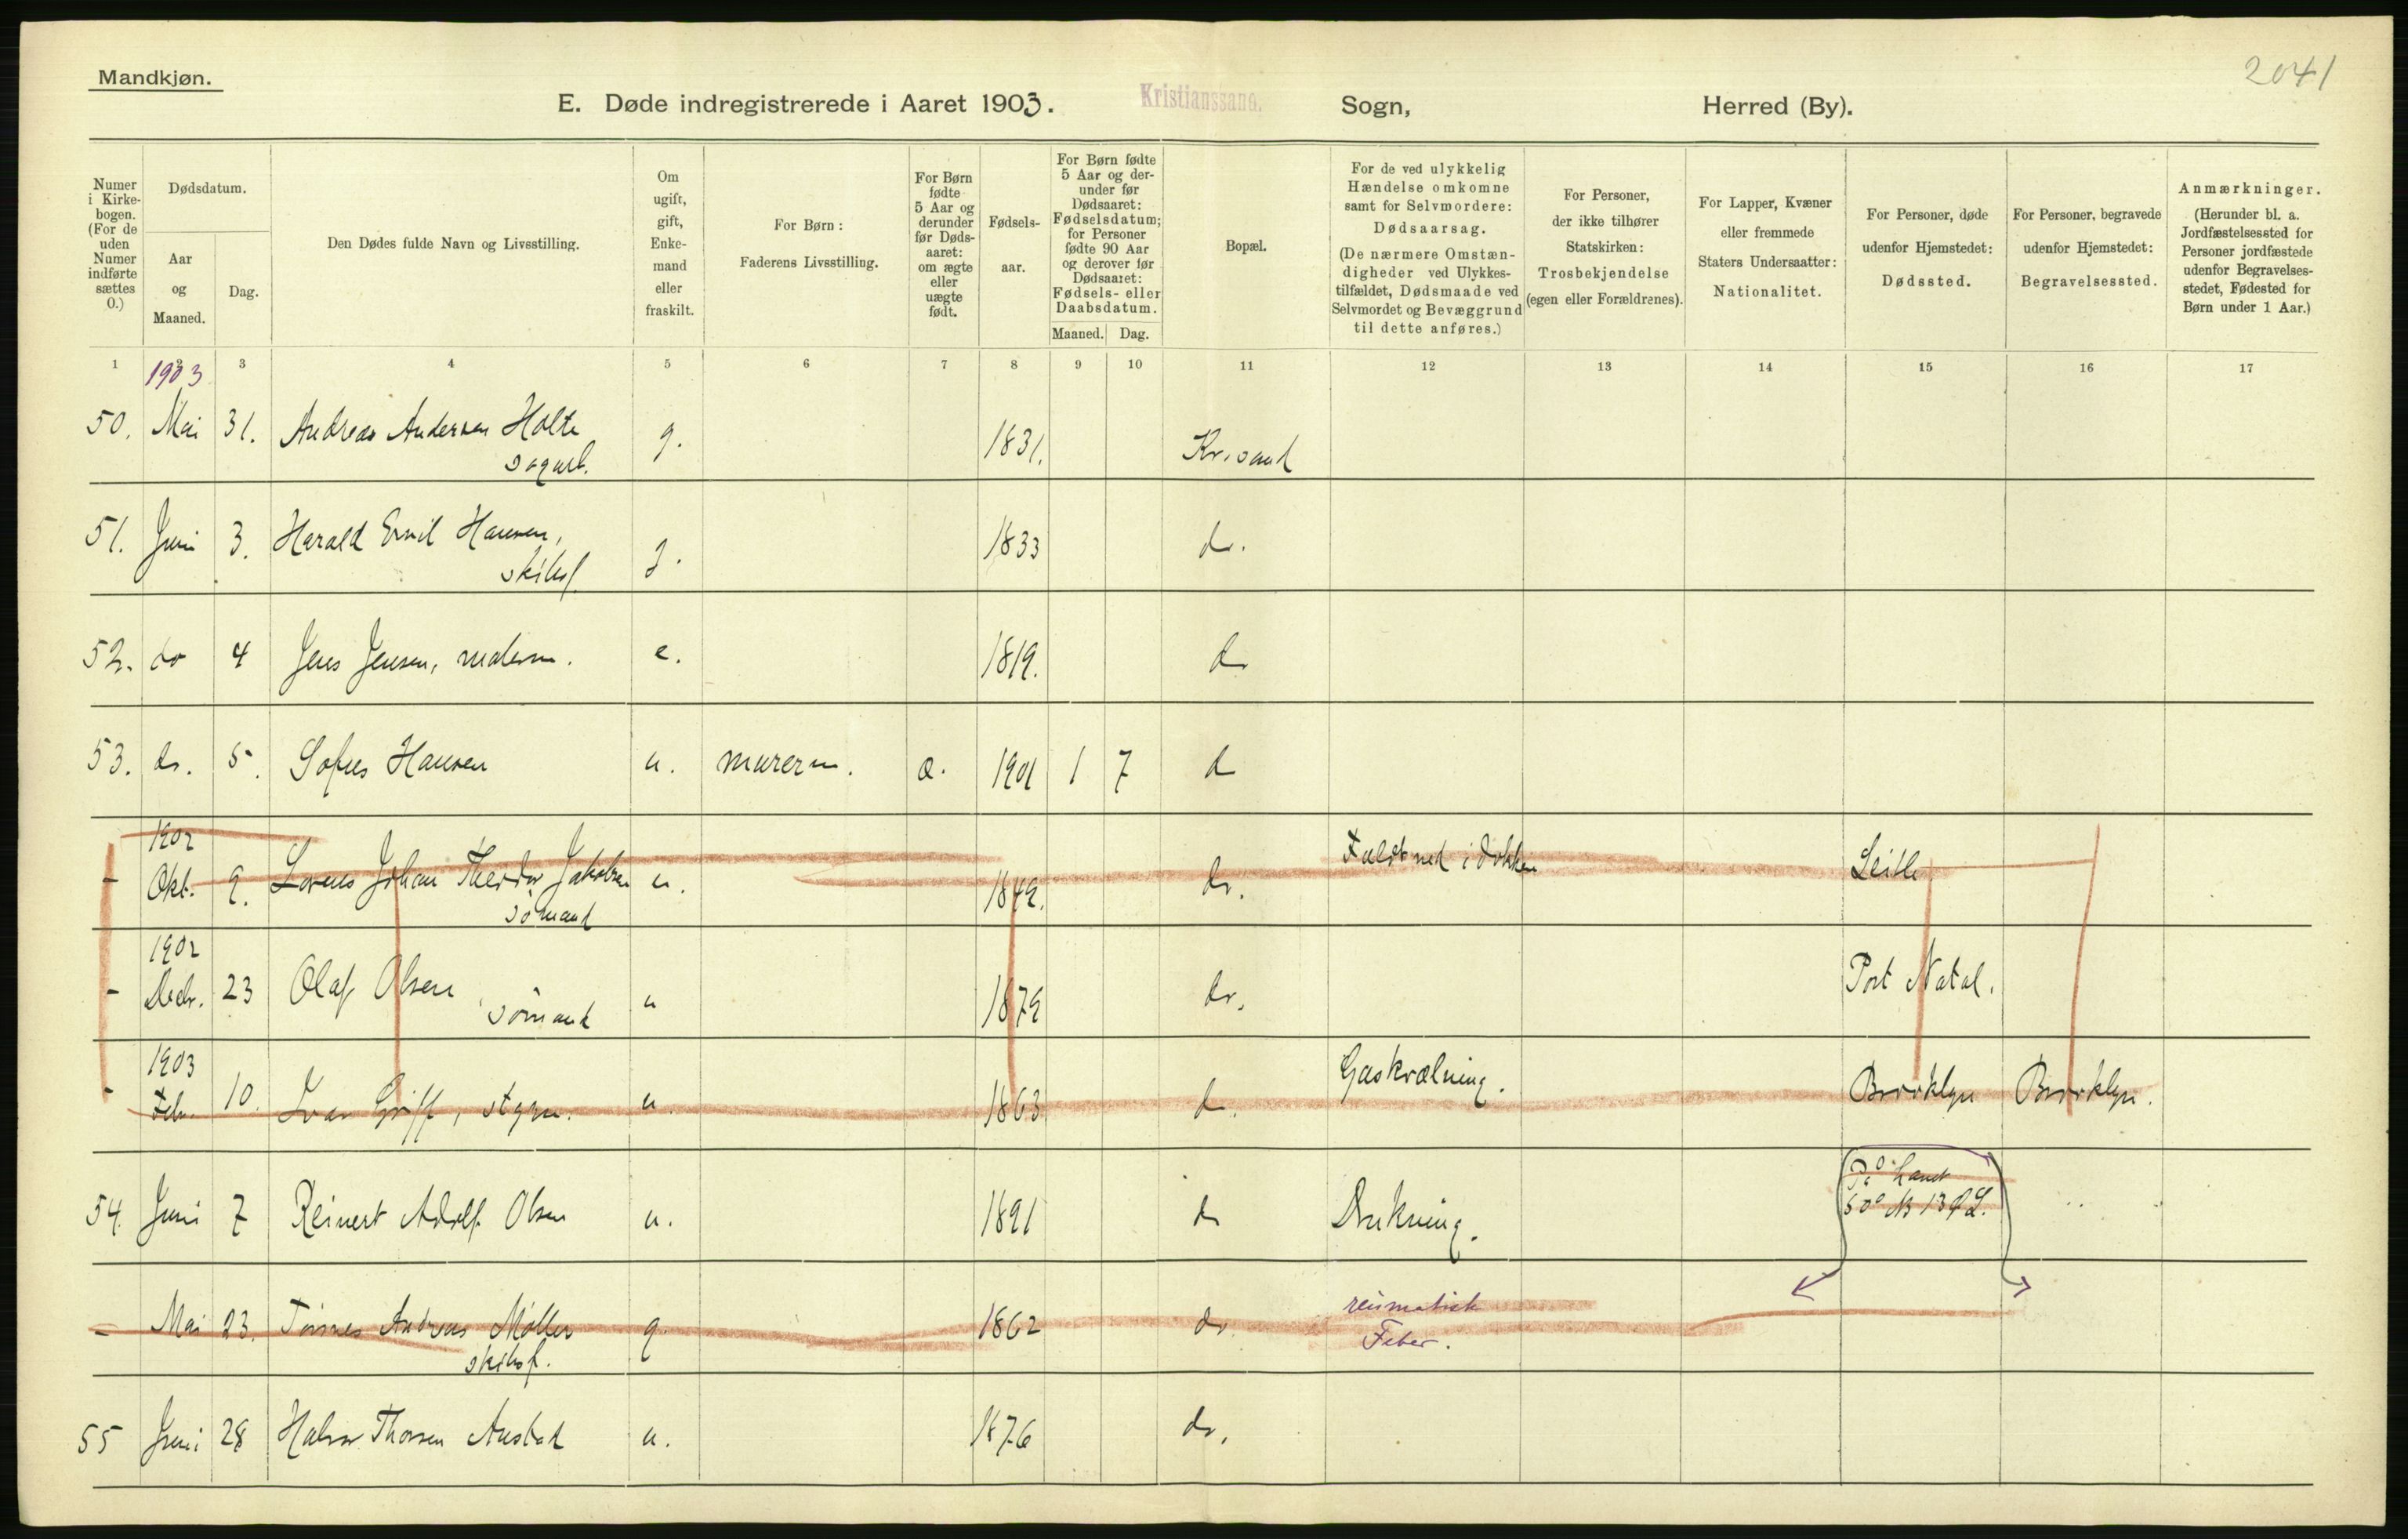 Mandkjøn.
2041
E. Døde indregistrerede i Aaret 1903. Kristianssand. Sogn, Herred (By).
Numer i Kirkebogen. (For de uden Numer indførte sættes 0.)
Dødsdatum.
Aar og Maaned.
Dag.
Den Dødes fulde Navn og Livsstilling.
Om ugift, gift, Enkemand eller fraskilt.
For Børn: Faderens Livsstilling.
For Børn fødte 5 Aar og derunder før Dødsaaret: om ægte eller uægte født.
Fødselsaar.
For Børn fødte 5 Aar og derunder før Dødsaaret: Fødselsdatum; for Personer fødte 90 Aar og derover før Dødsaaret: Fødsels- eller Daabsdatum.
Maaned. Dag.
Bopæl.
For de ved ulykkelig Hændelse omkomne samt for Selvmordere: Dødsaarsag. (De nærmere Omstændigheder ved Ulykkestilfældet, Dødsmaade ved Selvmordet og Bevæggrund til dette anføres.)
For Personer, der ikke tilhører Statskirken: Trosbekjendelse (egen eller Forældrenes).
For Lapper, Kvæner eller fremmede Staters Undersaatter: Nationalitet.
For Personer, døde udenfor Hjemstedet: Dødssted.
For Personer, begravede udenfor Hjemstedet: Begravelsessted.
Anmærkninger. (Herunder bl. a. Jordfæstelsessted for Personer jordfæstede udenfor Begravelsesstedet, Fødested for Børn under 1 Aar.)
1 2 3 4 5 6 7 8 9 10 11 12 13 14 15 16 17
1903
50. Mai 31. Andreas Andersen Holte g. 1831. Kr.sand
sagarb.
51. Juni 3. Harald Emil Hansen, g. 1833 do.
skibsf.
52. do 4 Jens Jensen, malerm. e. 1819. do
53. do. 5. Sofus Hansen u. murerm. æ. 1901 1 7 do
1902
- Okt. 9. Lorens Johan Theodor Jakobsen u. 1849. do. Faldt ned i dokken Leith
sømand
1902
- Decbr. 23 Olaf Olsen, u 1879 do. Port Natal.
sømand
1903
- Febr. 10. Ivar Griff, styrm. u. 1863 do. Gaskvælning. Brooklyn Brooklyn.
54. Juni 7 Reinert Adolf Olsen u. 1891 do Drukning. På havet
50° N 13
- Mai 23. Tønnes Andreas Møller g. 1862 do. reumatisk
skibsf. Feber.
55 Juni 28 Halvor Thorsen Austad u. 1876 do.